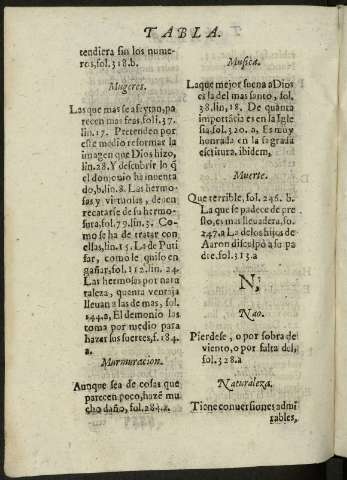 TABLA.
tendiera sin los nume-
ros, fol. 318. b.
Mugeres.
Las que mas se afeytan, pa
recen mas feas, fol. 37.
lin. 17. Pretenden por
este medio reformar la
imagen que Dios hizo,
lin. 28. Y descubrir lo q̃
el demonio ha inuenta
do, b. lin. 8. Las hermo-
sas y virtuosas, deuen
recatarse de su hermo-
sura, fol. 79. lin. 3. Co-
mo se ha de tratar con
ellas, lin. 15. La de Puti
far, como le quiso en
gañar, fol. 112. lin. 24.
Las hermosas por natu
raleza, quanta ventaja
lleuan a las de mas, fol.
144. a. El demonio las
toma por medio para
hazer sus suertes, f. 184.
a.
Murmuracion.
Aunque sea de cosas que
parecen poco, hazẽ mu
cho daño, fol. 284. a.
Musica.
La que mejor suena a Dios
es la del mas santo, fol.
38. lin. 18. De quãta
importãcia es en la Igle
sia, fol. 320. a. Es muy
honrada en la sagrada
escritura, ibidem.
Muerte.
Que terrible, fol. 246. b.
La que se padece de pre
sto, es mas lleuadera, fo.
247. a La de los hijos de
Aaron disculpò a su pa
dre. fol. 313. a
N;
Nao.
Pierdese, o por sobra de
viento, o por falta del,
fol. 328. a
Naturaleza.
Tiene conuersiones admi
rables,